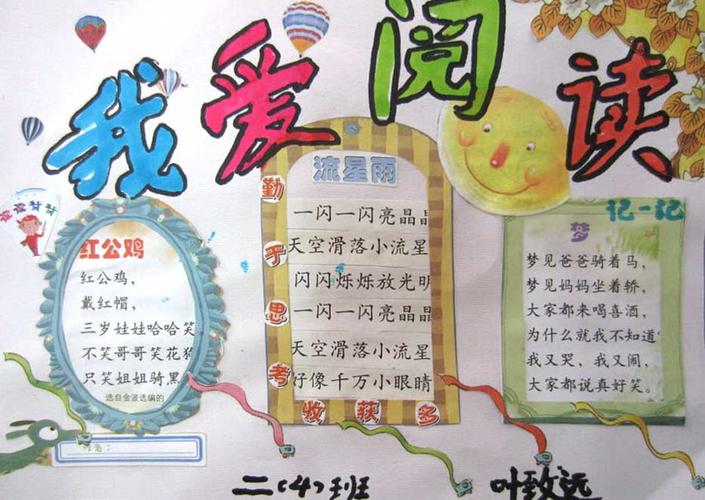 我爱阅读
红公鸡
红公鸡，
戴红帽，
三岁娃娃哈哈笑
不笑哥哥笑花狗
只笑姐姐骑黑
选自金波选编的
勤于思考
流星雨
一闪一闪亮晶晶
天空滑落小流星
闪闪烁烁放光明
一闪一闪亮晶晶
天空滑落小流星
好像千万小眼睛
收获多
记一记
梦
梦见爸爸骑着马，
梦见妈妈坐着轿，
大家都来喝喜酒，
为什么就我不知道
我又哭，我又闹，
大家都说真好笑。
二（4）班
叶致远